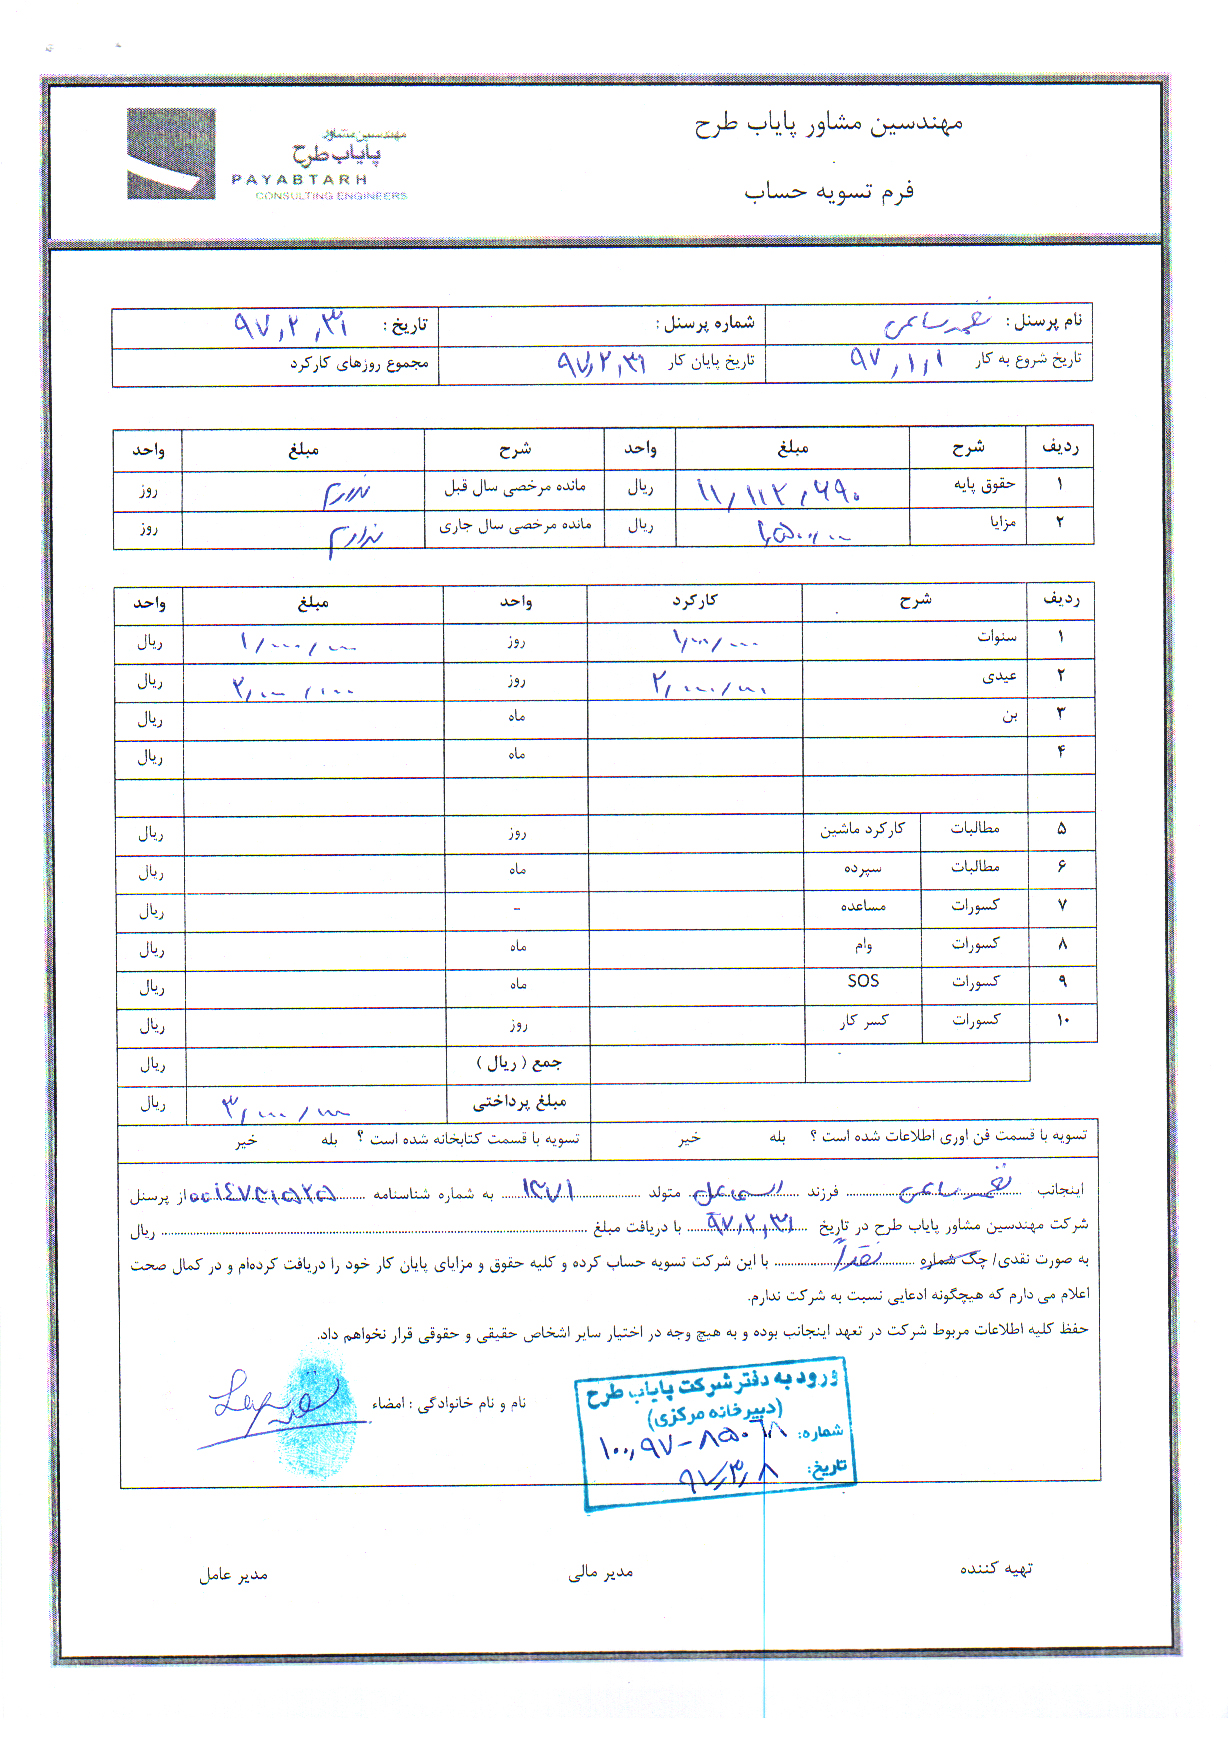 مهندسین مشاور پایاب طرح
فرم تسویه حساب
مهندسین مشاور
پایاب طرح
PAYABTARH
CONSULTING ENGINEERS
نام پرسنل : شماره پرسنل : تاریخ : ۹۷,۲,۳۱
تاریخ شروع به کار ۹۷,۱,۱ تاریخ پایان کار ۹۷,۲,۳۱ مجموع روزهای کارکرد
ردیف شرح مبلغ واحد شرح مبلغ واحد
۱ حقوق پایه ۱۱/۱۱۲,۶۹۰ ریال مانده مرخصی سال قبل ندارم روز
۲ مزایا ریال مانده مرخصی سال جاری ندارم روز
ردیف شرح کارکرد واحد مبلغ واحد
۱ سنوات ۱/۰۰۰/۰۰۰ روز ۱/۰۰۰/۰۰۰ ریال
۲ عیدی ۲/۰۰۰/۰۰۰ روز ۲/۰۰۰/۰۰۰ ریال
۳ بن ماه ریال
۴ ماه ریال
۵ مطالبات کارکرد ماشین روز ریال
۶ مطالبات سپرده ماه ریال
۷ کسورات مساعده - ریال
۸ کسورات وام ماه ریال
۹ کسورات SOS ماه ریال
۱۰ کسورات کسر کار روز ریال
جمع ( ریال ) ریال
مبلغ پرداختی ۳/۰۰۰/۰۰۰ ریال
تسویه با قسمت فن اوری اطلاعات شده است ؟ بله خیر تسویه با قسمت کتابخانه شده است ؟ بله خیر
اینجانب فرزند متولد ۱۳۷۱ به شماره شناسنامه از پرسنل
شرکت مهندسین مشاور پایاب طرح در تاریخ ۹۷,۲,۳۱ با دریافت مبلغ ریال
به صورت نقدی/ چک شماره نقداً با این شرکت تسویه حساب کرده و کلیه حقوق و مزایای پایان کار خود را دریافت کرده‌ام و در کمال صحت
اعلام می دارم که هیچگونه ادعایی نسبت به شرکت ندارم.
حفظ کلیه اطلاعات مربوط شرکت در تعهد اینجانب بوده و به هیچ وجه در اختیار سایر اشخاص حقیقی و حقوقی قرار نخواهم داد.
نام و نام خانوادگی : امضاء
ورود به دفتر شرکت پایاب طرح
(دبیرخانه مرکزی)
شماره:
تاریخ: ۹۷,۳,۸
تهیه کننده مدیر مالی مدیر عامل